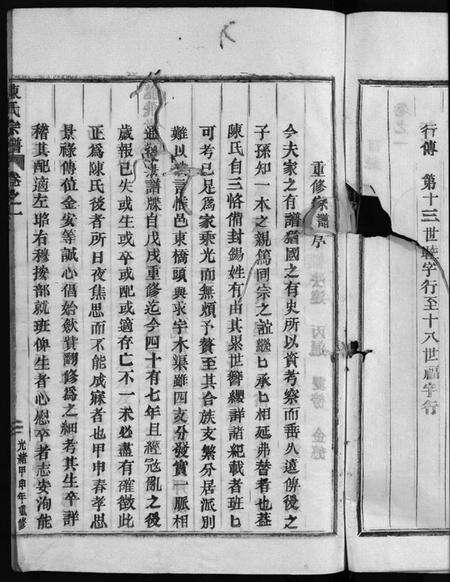 行傳 第十三世睦字行至十八世福字行
重修家譜序
今夫家之有譜猶國之有史所以資考察而垂久遠俾後之
子孫知一本之親篤同宗之誼繼匕承匕相延弗替者也蓋
陳氏自三恪備封錫姓有由其累世簪纓詳諸紀載者班匕
可考已足爲家乘光而無煩予贅至其合族支繁分居派別
難以 邑東橋頭與求宇木渠雖四支分發實一脈相
通 譜牒自戊戌重修迄今四十有七年且經寇亂之後
歲報已失或生或卒或配或適存亡不一未必盡有確徵此
正爲陳氏後者所日夜焦思而不能成寐者也甲申春孝思
景祿傳位金安等誠心倡始歛貲翻修爲之細考其生卒詳
稽其配適左昭右穆按部就班俾生者心慰卒者志安洵能
陳氏宗譜 卷之一
光緒甲申年重修